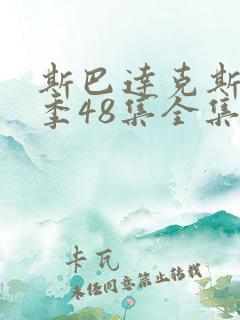 斯巴达克斯
季48集全集
卡瓦
未经同意禁止转载